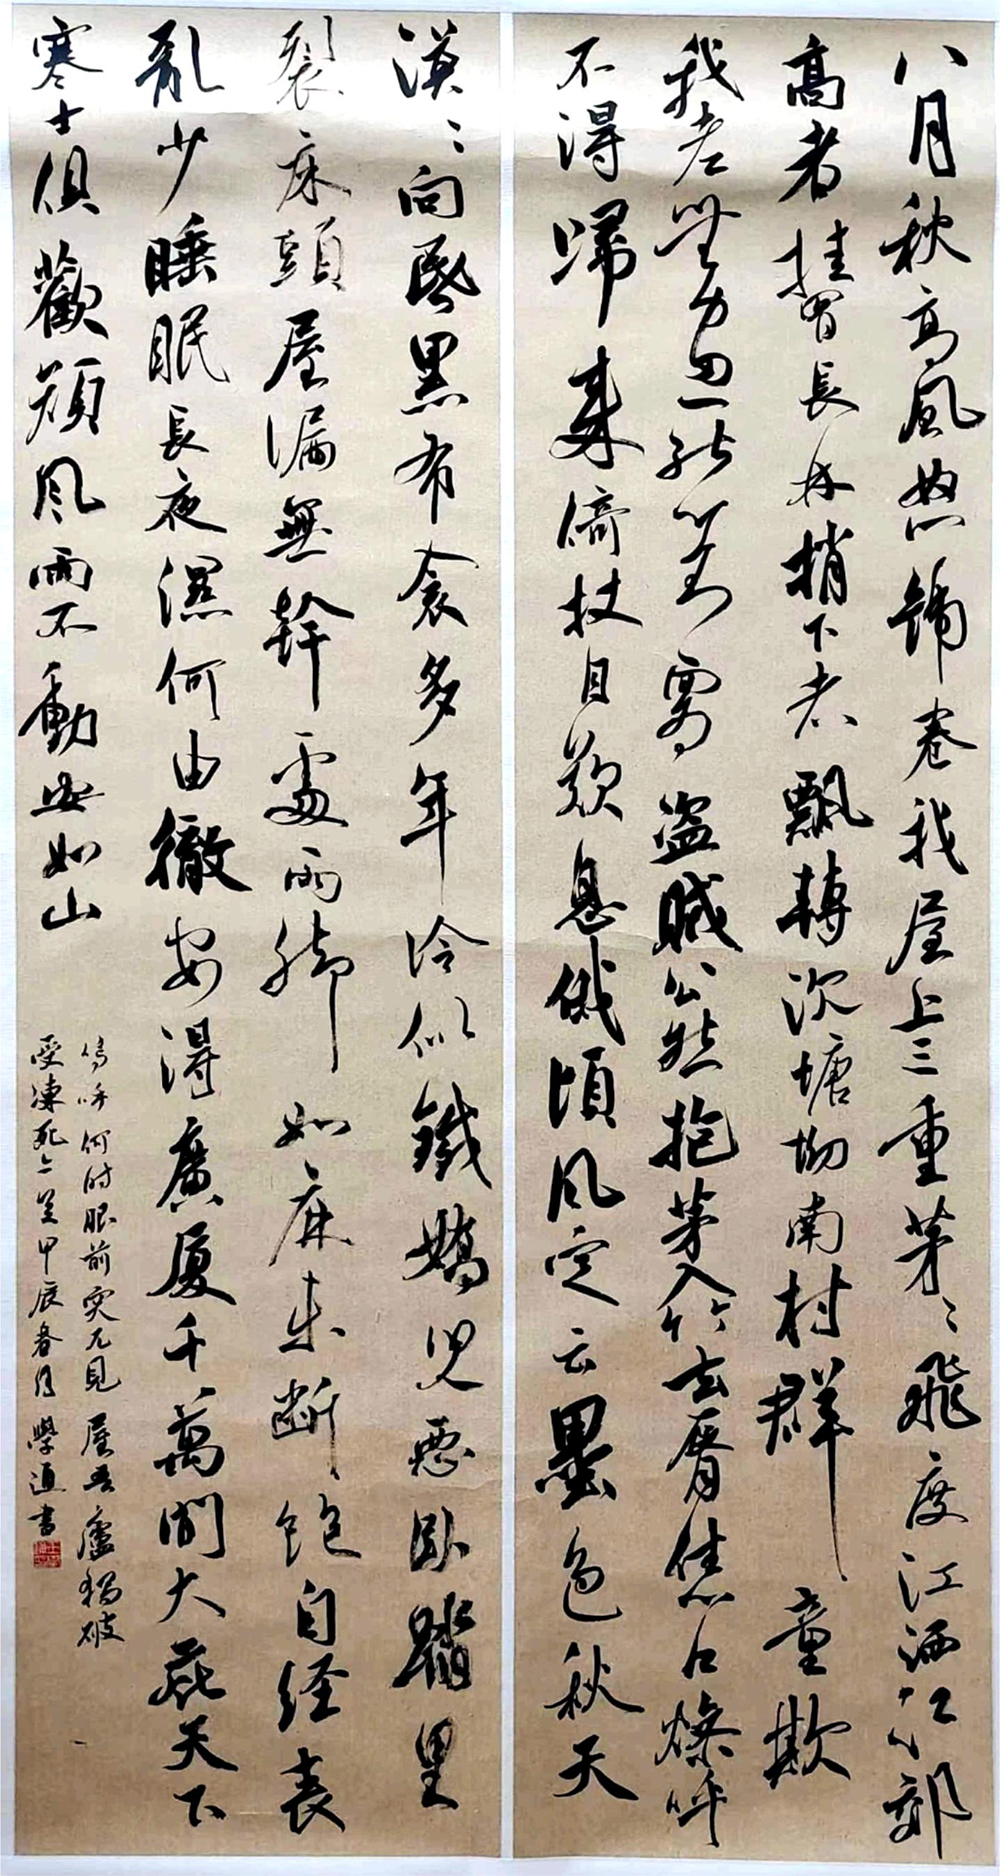 八月秋高風怒號卷我屋上三重茅〻飛度江洒江郊
高者挂罥長林捎下者飄轉沉塘坳南村群童欺
我老無力忍能對面為盜賊公然抱茅入竹去脣焦口燥呼
不得歸來倚杖自歎息俄頃風定云墨色秋天
漠〻向昏黑布衾多年冷似鐵嬌兒惡臥踏里
裂床頭屋漏無幹處雨腳如麻未斷絕自經喪
亂少睡眠長夜濕何由徹安得廣厦千萬間大庇天下
寒士俱歡顏風雨不動安如山
嗚呼何時眼前突兀見屋吾廬獨破
受凍死亦足甲辰春月學書